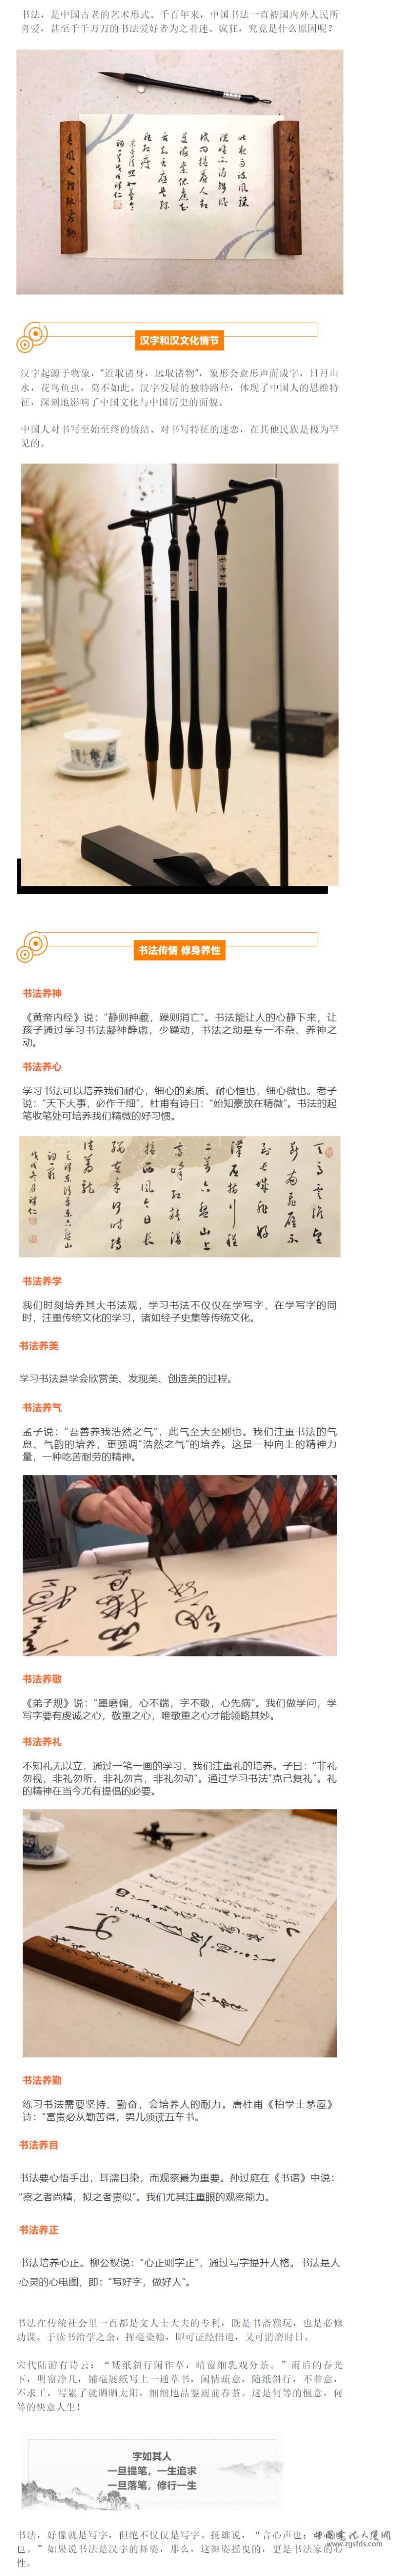 书法，是中国古老的艺术形式。千百年来，中国书法一直被国内外人民所
喜爱，甚至千千万万的书法爱好者为之着迷、疯狂，究竟是什么原因呢？
汉字和汉文化情节
汉字起源于物象，“近取诸身，远取诸物”，象形会意形声而成字，日月山
水，花鸟鱼虫，莫不如此。汉字发展的独特路径，体现了中国人的思维特
征，深刻地影响了中国文化与中国历史的面貌。
中国人对书写至始至终的情结、对书写特征的迷恋，在其他民族是极为罕
见的。
书法传情 修身养性
书法养神
《黄帝内经》说：“静则神藏，躁则消亡”。书法能让人的心静下来，让
孩子通过学习书法凝神静虑，少躁动，书法之动是专一不杂、养神之
动。
书法养心
学习书法可以培养我们耐心，细心的素质。耐心恒也，细心微也。老子
说：“天下大事，必作于细”，杜甫有诗曰：“始知豪放在精微”。书法的起
笔收笔处可培养我们精微的好习惯。
书法养学
我们时刻培养其大书法观，学习书法不仅仅在学写字，在学写字的同
时，注重传统文化的学习，诸如经子史集等传统文化。
书法养美
学习书法是学会欣赏美、发现美、创造美的过程。
书法养气
孟子说：“吾善养我浩然之气”，此气至大至刚也。我们注重书法的气
息、气韵的培养，更强调“浩然之气”的培养。这是一种向上的精神力
量，一种吃苦耐劳的精神。
书法养敬
《弟子规》说：“墨磨偏，心不端，字不敬，心先病”。我们做学问，学
写字要有虔诚之心，敬重之心，唯敬重之心才能领略其妙。
书法养礼
不知礼无以立，通过一笔一画的学习，我们注重礼的培养。子曰：“非礼
勿视，非礼勿听，非礼勿言，非礼勿动”。通过学习书法“克己复礼”。礼
的精神在当今尤有提倡的必要。
书法养勤
练习书法需要坚持、勤奋，会培养人的耐力。唐杜甫《柏学士茅屋》
诗：“富贵必从勤苦得，男儿须读五车书。
书法养目
书法要心悟手出，耳濡目染，而观察最为重要。孙过庭在《书谱》中说：
“察之者尚精，拟之者贵似”。我们尤其注重眼的观察能力。
书法养正
书法培养心正。柳公权说：“心正则字正”，通过写字提升人格。书法是人
心灵的心电图，即：“写好字，做好人”。
书法在传统社会里一直都是文人士大夫的专利，既是书斋雅玩，也是必修
功课。于读书治学之余，挥毫染翰，即可证经悟道，又可消磨时日。
宋代陆游有诗云：“矮纸斜行闲作草，晴窗细乳戏分茶。”雨后的春光
下，明窗净几，铺毫展纸写上一通草书，闲情疏意，随纸斜行，不着意，
不求工，写累了就晒晒太阳，细细地品鉴雨前春茶。这是何等的惬意，何
等的快意人生！
字如其人
一旦提笔，一生追求
一旦落笔，修行一生
书法，好像就是写字，但绝不仅仅是写字。扬雄说，“言心声也；
也。”如果说书法是汉字的舞姿，那么，这舞姿摇曳的，更是书法家的心
性。
www.zgsfds.com